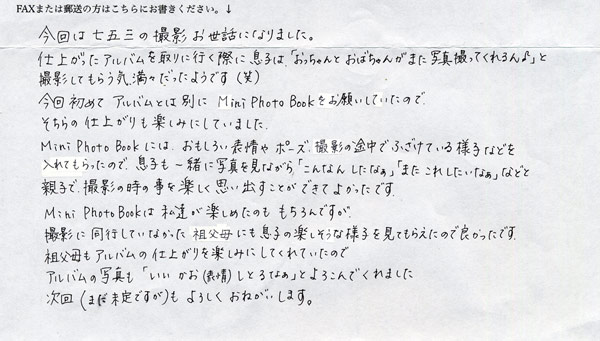 FAXまたは郵送の方はこちらにお書きください。↓
今回は七五三の撮影お世話になりました。
仕上がったアルバムを取りに行く際に息子は、「おっちゃんとおばちゃんがまた写真撮ってくれるん♪」と
撮影してもらう気満々だったようです(笑)
今回初めてアルバムとは別にMini Photo Bookをお願いしていたので、
そちらの仕上がりも楽しみにしていました。
Mini Photo Bookには、おもしろい表情やポーズ、撮影の途中でふざけている様子などを
入れてもらったので、息子も一緒に写真を見ながら「こんなんしたなぁ」「またこれしたいなぁ」などと
親子で、撮影の時の事を楽しく思い出すことができてよかったです。
Mini Photo Bookは私達が楽しめたのももちろんですが、
撮影に同行していなかった祖父母にも息子の楽しそうな様子を見てもらえたので良かったです。
祖父母もアルバムの仕上がりを楽しみにしてくれていたので
アルバムの写真も「いいかお(表情)しとるなぁ」とよろこんでくれました
次回(まだ未定ですが)もよろしくおねがいします。